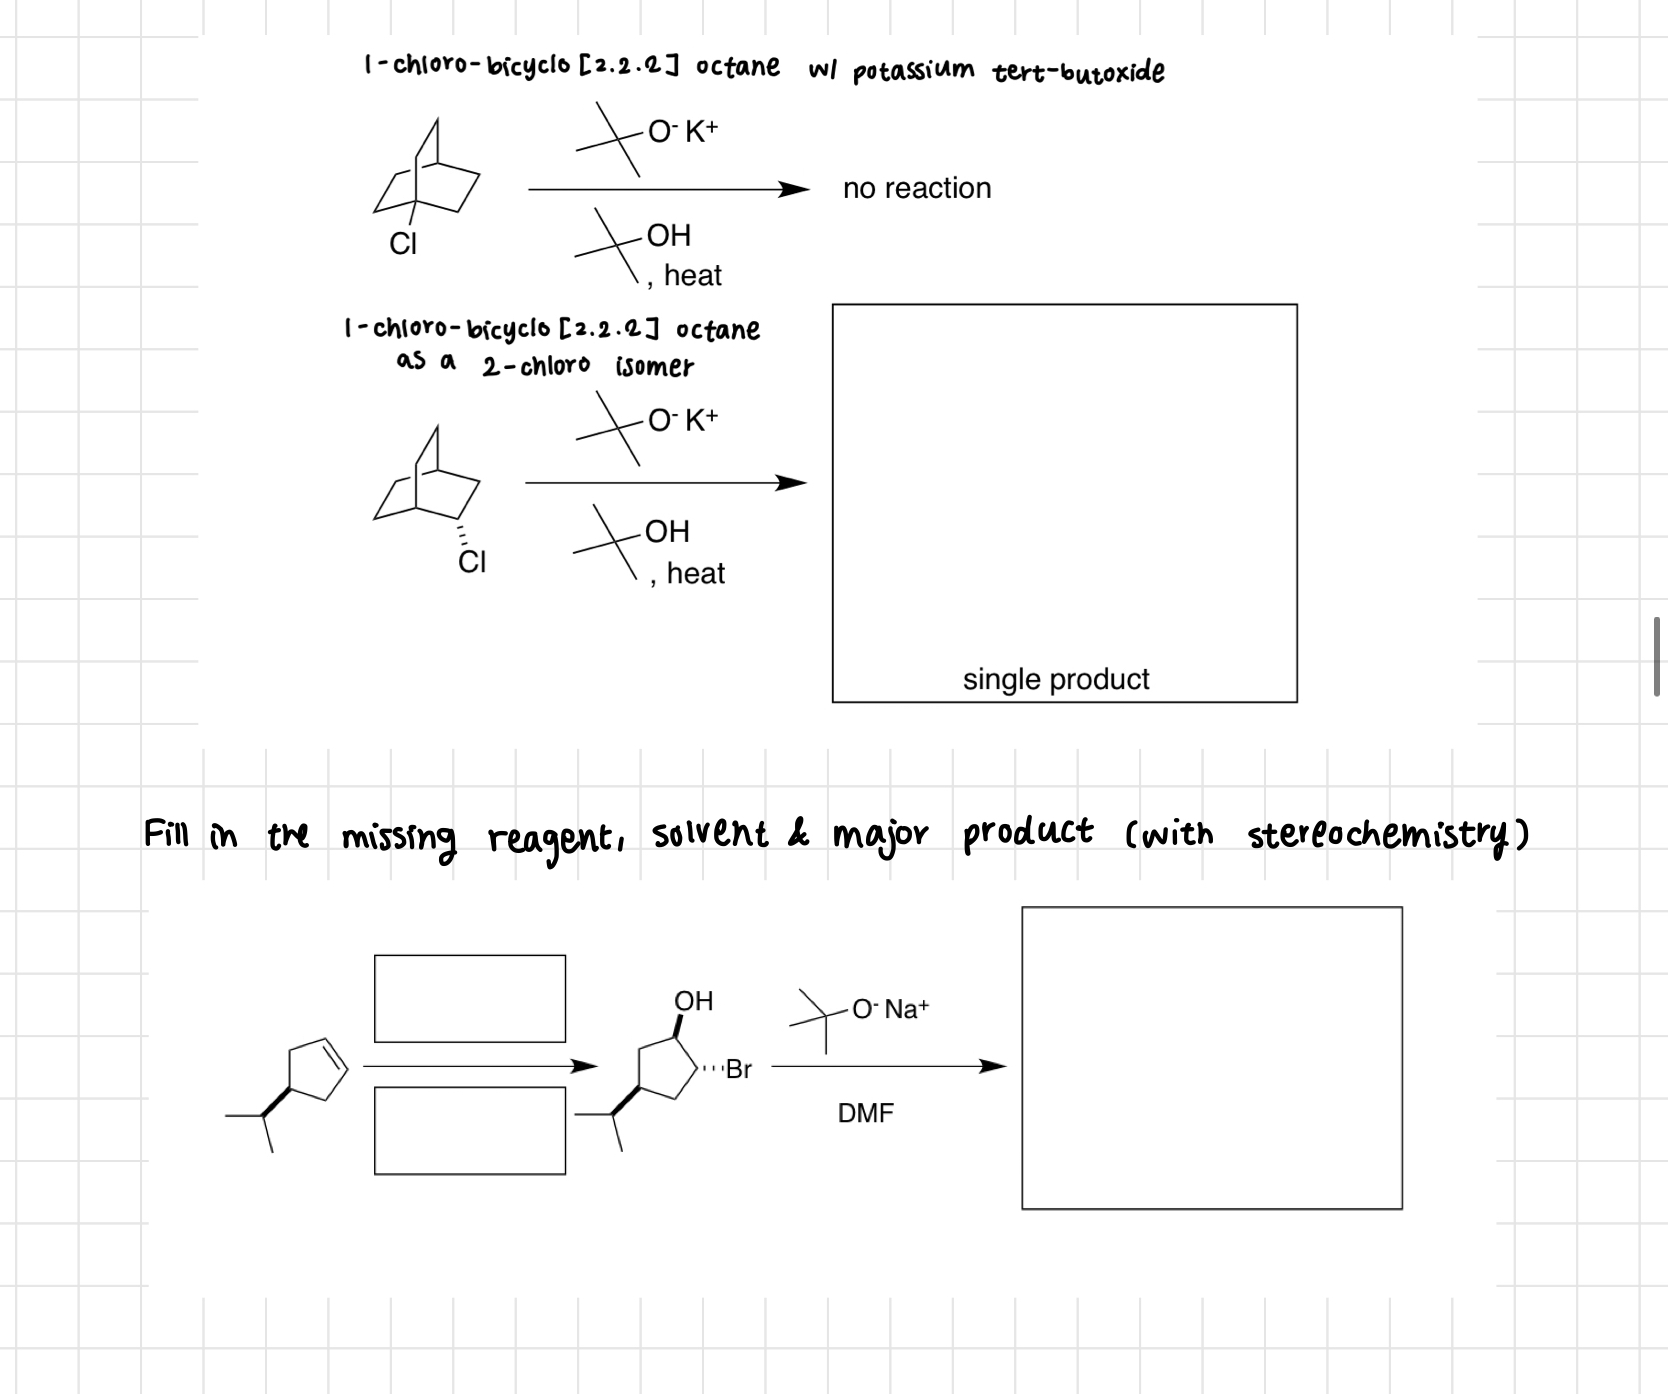 1-chloro-bicyclo [2.2.2] octane w/ potassium tert-butoxide
O- K+
no reaction
Cl
OH
, heat
1-chloro-bicyclo [2.2.2] octane
as a 2-chloro isomer
O- K+
OH
Cl
, heat
single product
Fill in the missing reagent, solvent & major product (with stereochemistry)
OH
O- Na+
Br
DMF